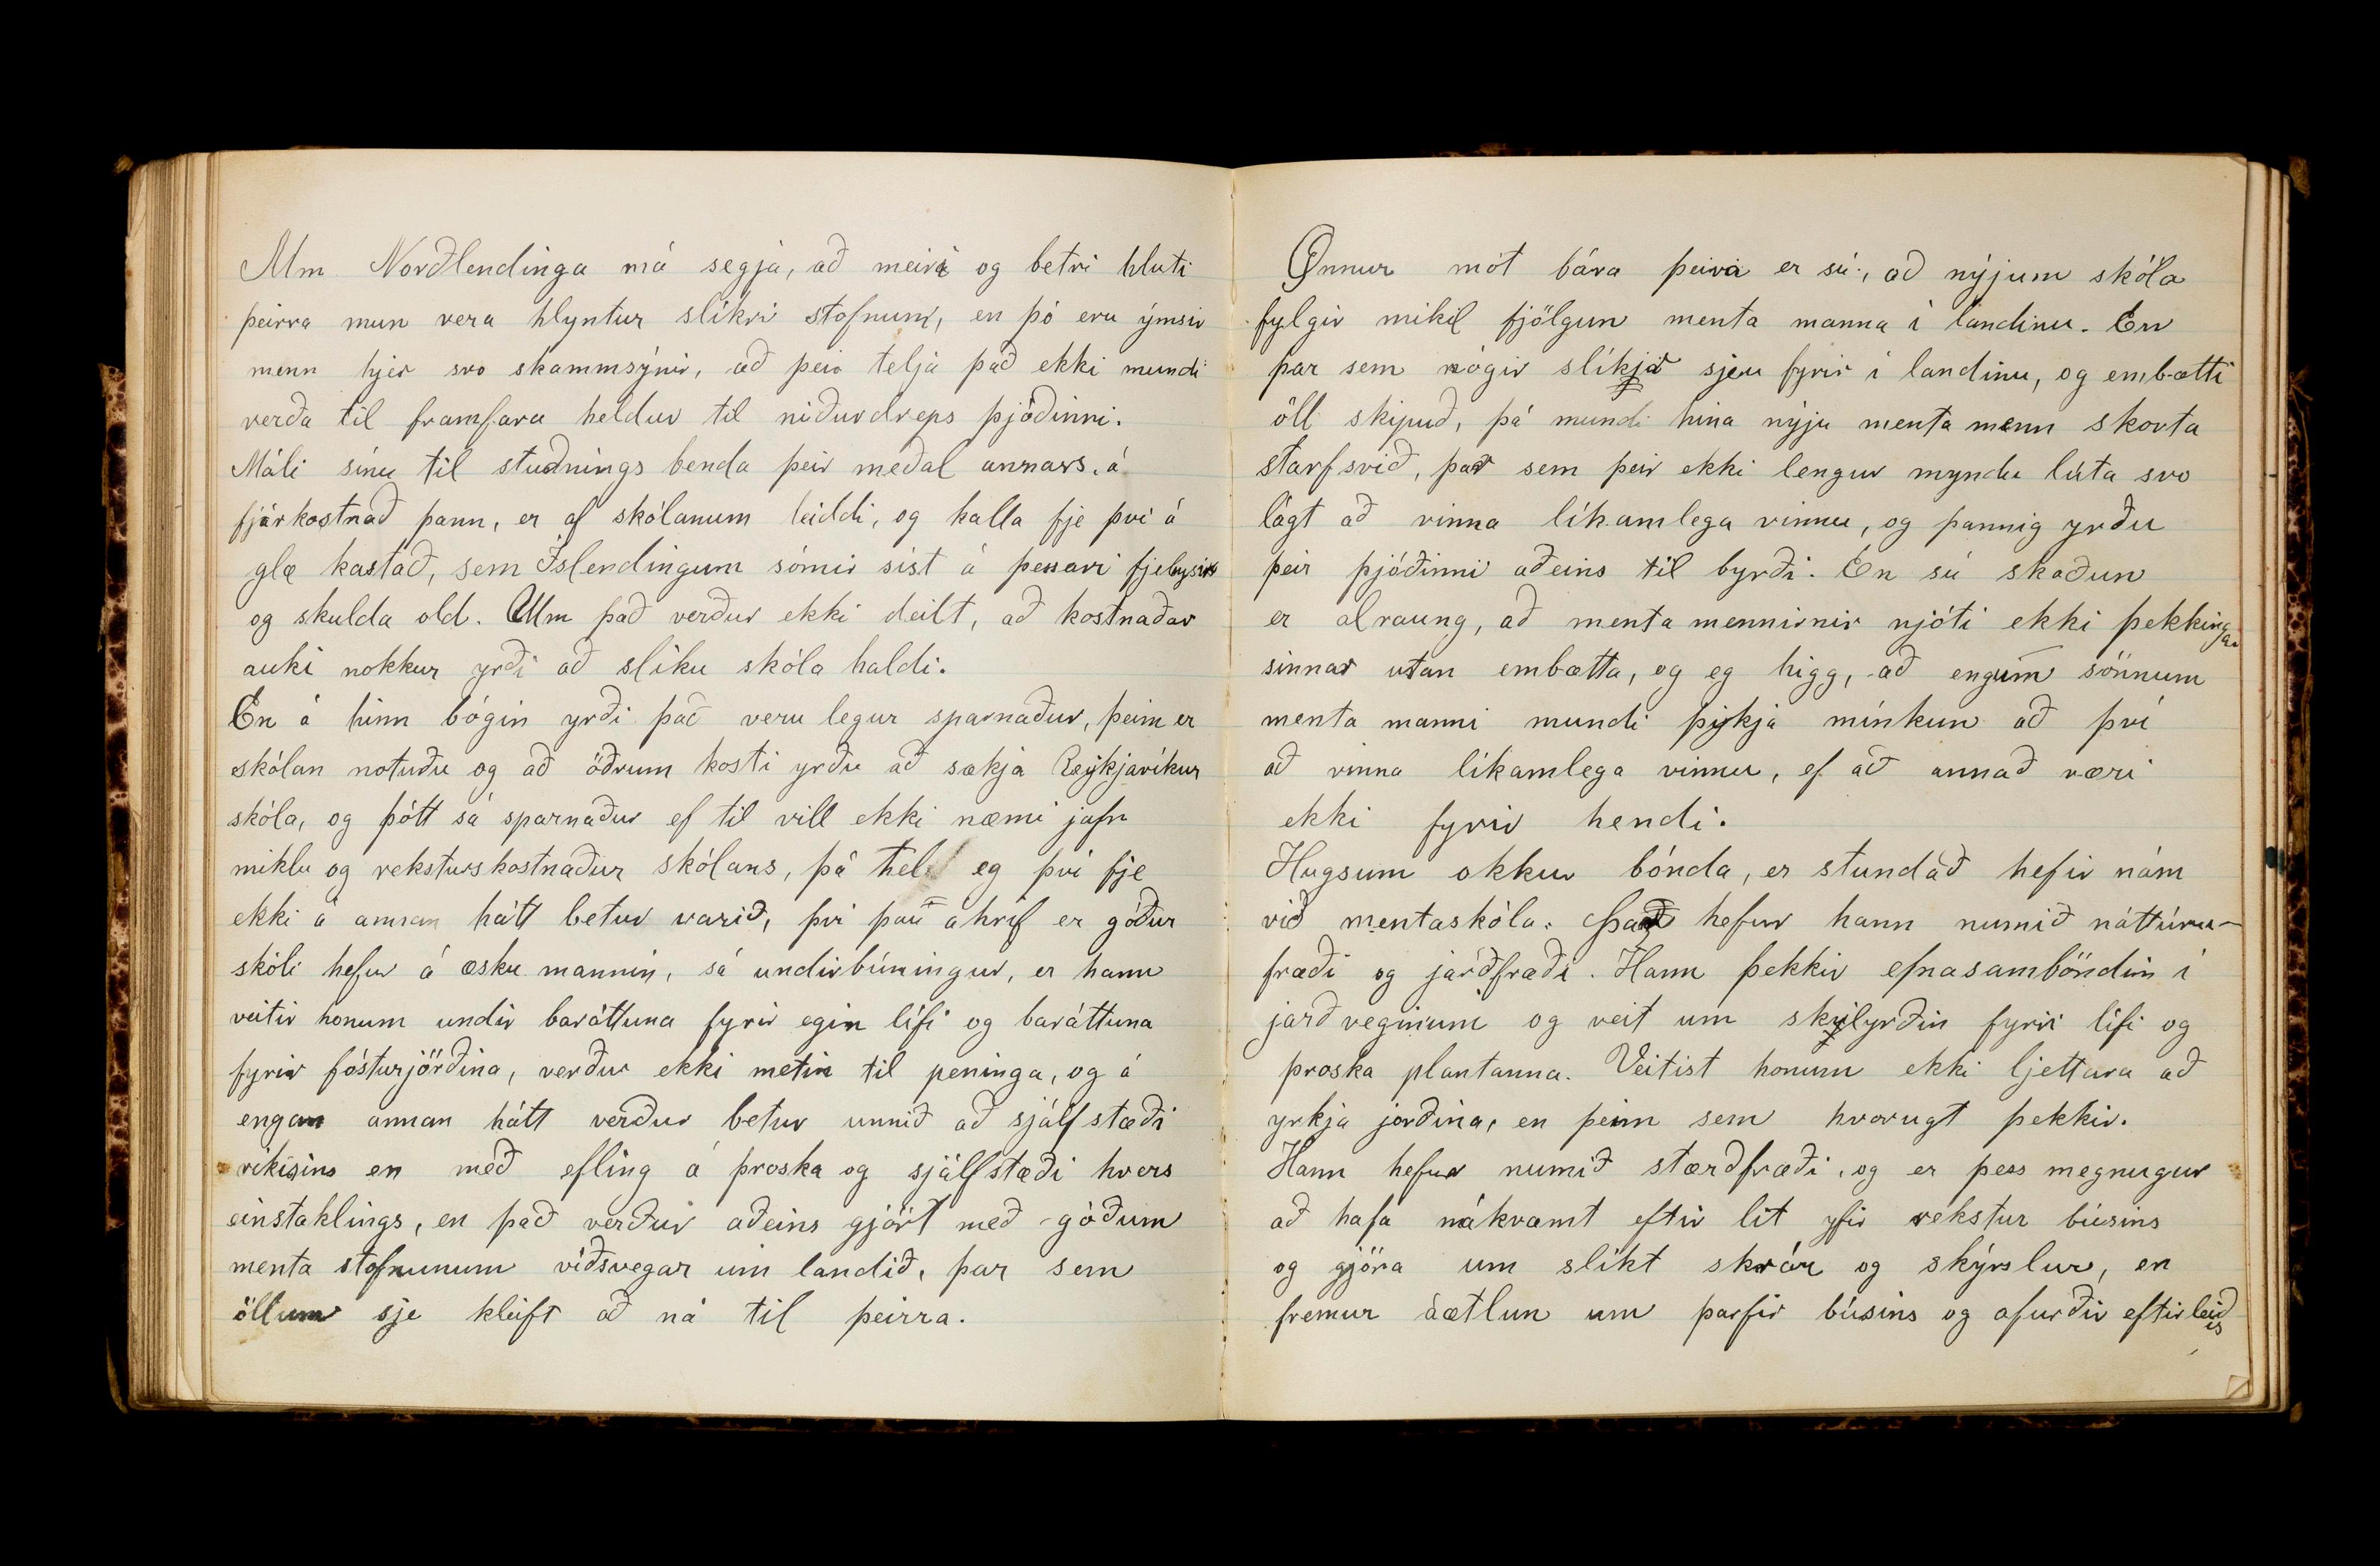 Um Norðlendinga má segja, að meiri og betri hluti
þeirra mun vera hlyntur slíkri stofnun, en þó eru ýmsir
menn hjer svo skammsýnir, að þeir telja það ekki mundi
verða til framfara heldur til niðurdreps þjóðinni.
Máli sínu til stuðnings benda þeir meðal annars á
fjárkostnað þann, er af skólanum leiddi, og kalla fje því á
glæ kastað, sem Íslendingum sómir síst á þessari fjeleysis
og skulda old. Um það verður ekki deilt, að kostnaðar
auki nokkur yrði að slíku skóla haldi.
En á hinn bógin yrði það veru legur sparnaður, þeim er
skólan notuðu og að öðrum kosti yrðu að sækja Reykjavíkur
skóla, og þótt sá sparnaður ef til vill ekki næmi jafn
miklu og reksturskostnaður skólans, þá tel eg því fje
ekki á annan hátt betur varið, því þau áhrif er góður
skóli hefur á æsku mannin, sá undirbúningur, er hann
veitir honum undir baráttuna fyrir egin lífi og baráttuna
fyrir fósturjörðina, verður ekki metin til peninga, og á
engan annan hátt verður betur unnið að sjálfstæði
ríkisins en með efling á þroska og sjálfstæði hvers
einstaklings, en það verður aðeins gjört með góðum
menta stofnunum víðsvegar um landið, þar sem
öllum sje kleift að ná til þeirra.
Önnur mót bára þeirra er sú, að nýjum skóla
fylgir mikil fjölgun menta manna í landinu. En
þar sem nógir slíkir sjeu fyrir í landinu, og embætti
öll skipuð, þá mundi hina nýju menta menn skorta
starfsvið, þar sem þeir ekki lengur myndu lúta svo
lágt að vinna líkamlega vinnu, og þannig yrðu
þeir þjóðinni aðeins til byrði. En sú skoðun
er alraung, að menta mennirnir njóti ekki þekkingar
sinnar utan embætta, og eg higg, að engum sönnum
menta manni mundi þykja mínkun að því
að vinna líkamlega vinnu, ef að annað væri
ekki fyrir hendi.
Hugsum okkur bónda, er stundað hefir nám
við mentaskóla. Þar hefur hann numið náttúru-
fræði og jarðfræði. Hann þekkir efnasamböndin í
jarðveginum og veit um skilyrðin fyrir lífi og
þroska plantanna. Veitist honum ekki ljettara að
yrkja jörðina, en þeim sem hvorugt þekkir.
Hann hefur numið stærðfræði, og er þess megnugur
að hafa nákvæmt eftir lit yfir rekstur búsins
og gjöra um slíkt skrár og skýrslur, en
fremur áætlun um þarfir búsins og afurðir eftirleiðis